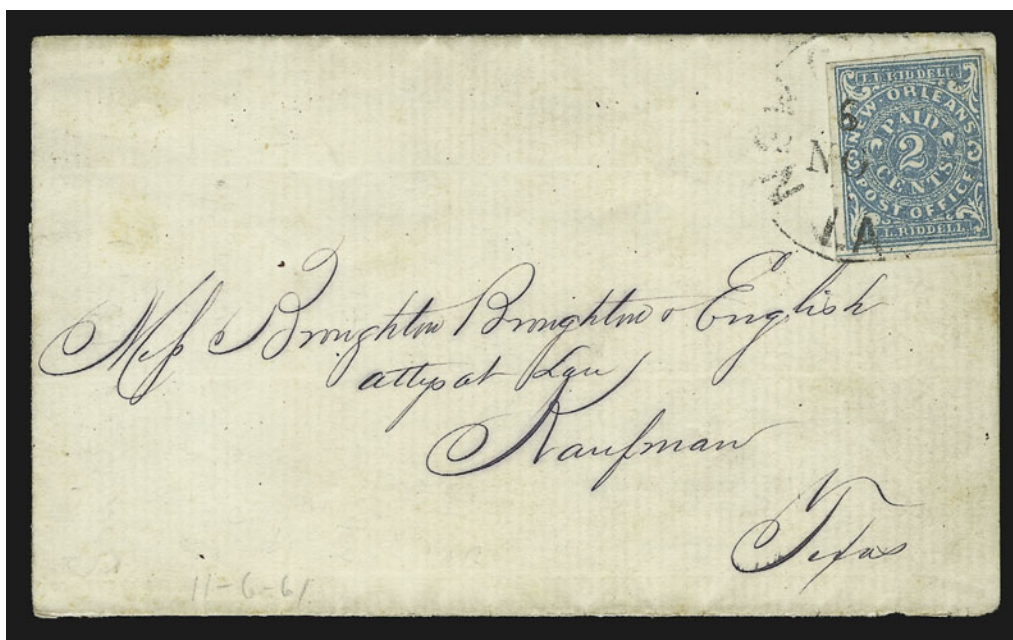 J.L. RIDDELL
NEW ORLEANS
PAID
2
CENTS
POST OFFICE
J.L. RIDDELL
NEW
6
NO
LA
Mess Broughton Broughton & English
attys at Law
Kaufman
Texas
11-6-61